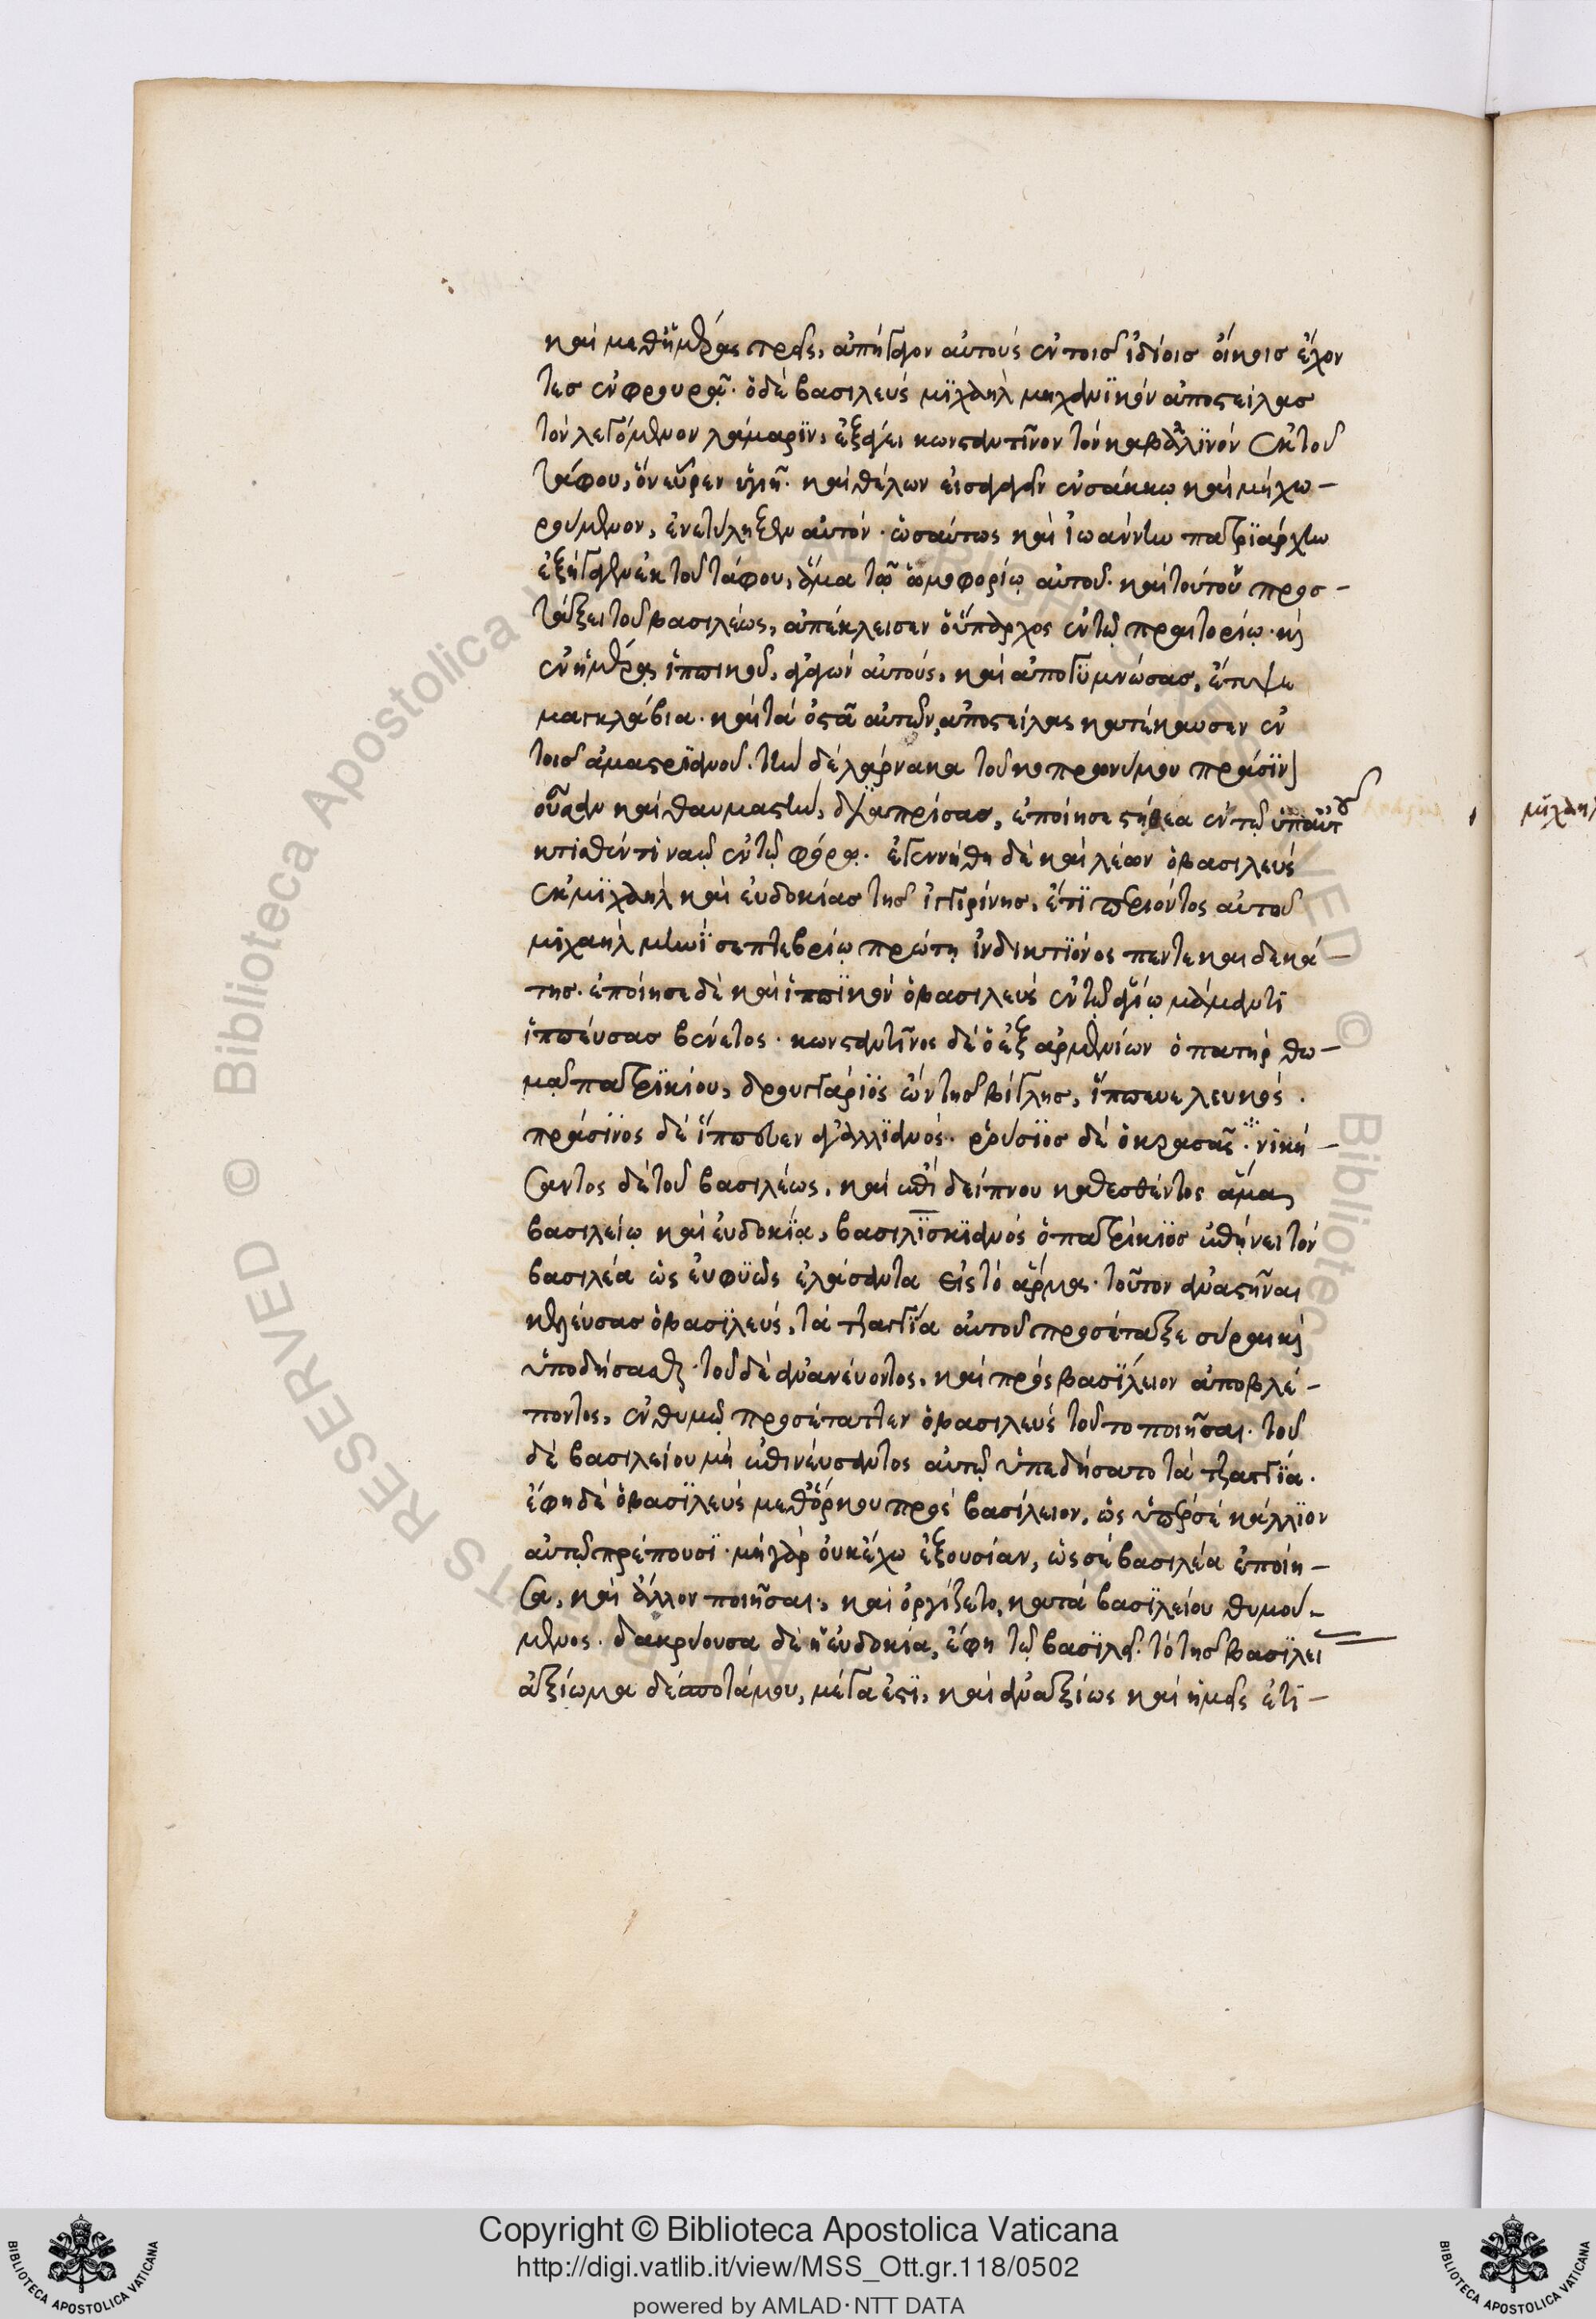 καὶ μεθ' ἡμέρας τρεῖς, ἀπήγαγον αὐτοὺς ἐν τοῖς ἰδίοις οἴκοις ἔχον
τες ἐν φρουρᾷ. ὁ δὲ βασιλεὺς μϊχαὴλ μηχανϊκὸν ἀποστείλας
τὸν λεγόμενον λάμαρϊν, ἐξάγει κωνσταντῖνον τὸν καβαλλῖνον ἐκ τοῦ
τάφου, ὃν εὗρεν ὑγιῆ. καὶ θέλων εἰσαγαγεῖν ἐν σάκκῳ καὶ μὴ χω-
ρούμενον, ἐνετύλιξεν αὐτόν. ὡσαύτως καὶ ἰωάννην πατρϊάρχην
ἐξήγαγεν ἐκ τοῦ τάφου, ἅμα τῷ ὠμοφορίῳ αὐτοῦ. καὶ τούτου προσ-
τάξει τοῦ βασιλέως, ἀπέκλεισεν ὁ ὕπαρχος ἐν τῷ πραιτορίῳ. καὶ
ἐν ἡμέρᾳ ἱππικοῦ, ἀγαγὼν αὐτοὺς, καὶ ἀπογϋμνώσας, ἔτυψε
μαγκλάβια. καὶ τὰ ὀστᾶ αὐτῶν, ἀποστείλας κατέκαυσεν ἐν
τοῖς ἀμαστριανοῦ. τὴν δὲ λάρνακα τοῦ κοπρωνύμου πράσϊνον
οὖσαν καὶ θαυμαστὴν, διαπρίσας, ἐποίησε στήθεα ἐν τῷ ὑπ' αὐτοῦ
κτισθέντι ναῷ ἐν τῷ φάρῳ. ἐγεννήθη δὲ καὶ λέων ὁ βασιλεὺς
ἐκ μϊχαὴλ καὶ εὐδοκίας τῆς ἰγγιρίνης, ἔτϊ περιόντος αὐτοῦ
μϊχαὴλ μηνῒ σεπτεβρίῳ πρώτῃ ἰνδικτϊόνος πεντεκαιδεκά-
της. ἐποίησε δὲ καὶ ἱππϊκὸν ὁ βασιλεὺς ἐν τῷ ἁγίῳ μάμαντι
ἱππεύσας βένετος. κωνσταντῖνος δὲ ὁ ἐξ ἀρμενίων ὁ πατὴρ θω-
μᾶ πατρϊκίου, δρουγγάριος ὢν τῆς βίγλης, ἵππευε λευκός.
πράσϊνος δὲ ἵππευεν ἀγαλλϊανός. ῥούσϊος δὲ ὁ κρασᾶς. νική-
σαντος δὲ τοῦ βασιλέως, καὶ ἐπὶ δείπνου καθεσθέντος ἅμα
βασιλείῳ καὶ εὐδοκίᾳ, βασιλϊσκϊανὸς ὁ πατρίκϊος ἐπῄνει τὸν
βασιλέα ὡς εὐφυῶς ἐλάσαντα εἰς τὸ ἅρμα. τοῦτον ἀναστῆναι
κελεύσας ὁ βασϊλεὺς, τὰ τζαγγία αὐτοῦ προσέταξε σύραι καὶ
ὑποδήσασθαι. τοῦ δὲ ἀνανεύοντος, καὶ πρὸς βασίλειον ἀποβλέ-
ποντος, ἐν θυμῷ προσέταττεν ὁ βασιλεὺς τοῦτο ποιῆσαι. τοῦ
δὲ βασιλείου μὴ ἐπινεύσαντος αὐτῷ ὑπεδήσατο τὰ τζαγγία.
ἔφη δὲ ὁ βασϊλεὺς μεθ' ὅρκου πρὸς βασίλειον, ὡς ὑπέρ σε κάλλϊον
αὐτῷ πρέπουσϊ. μὴ γὰρ οὐκ ἔχω ἐξουσίαν, ὡς σὲ βασιλέα ἐποίη-
σα, καὶ ἄλλον ποιῆσαι, καὶ ὀργίζετο, κατὰ βασϊλείου θυμού-
μενος. δακρύουσα δὲ ἡ εὐδοκία, ἔφη τῷ βασϊλεῖ. τὸ τῆς βασϊλεί
ἀξίωμα δέσποτά μου, μέγα ἐστϊ, καὶ ἀναξίως καὶ ἡμεῖς ἐτι-
μϊχαὴλ
Copyright © Biblioteca Apostolica Vaticana
http://digi.vatlib.it/view/MSS_Ott.gr.118/0502
powered by AMLAD·NTT DATA